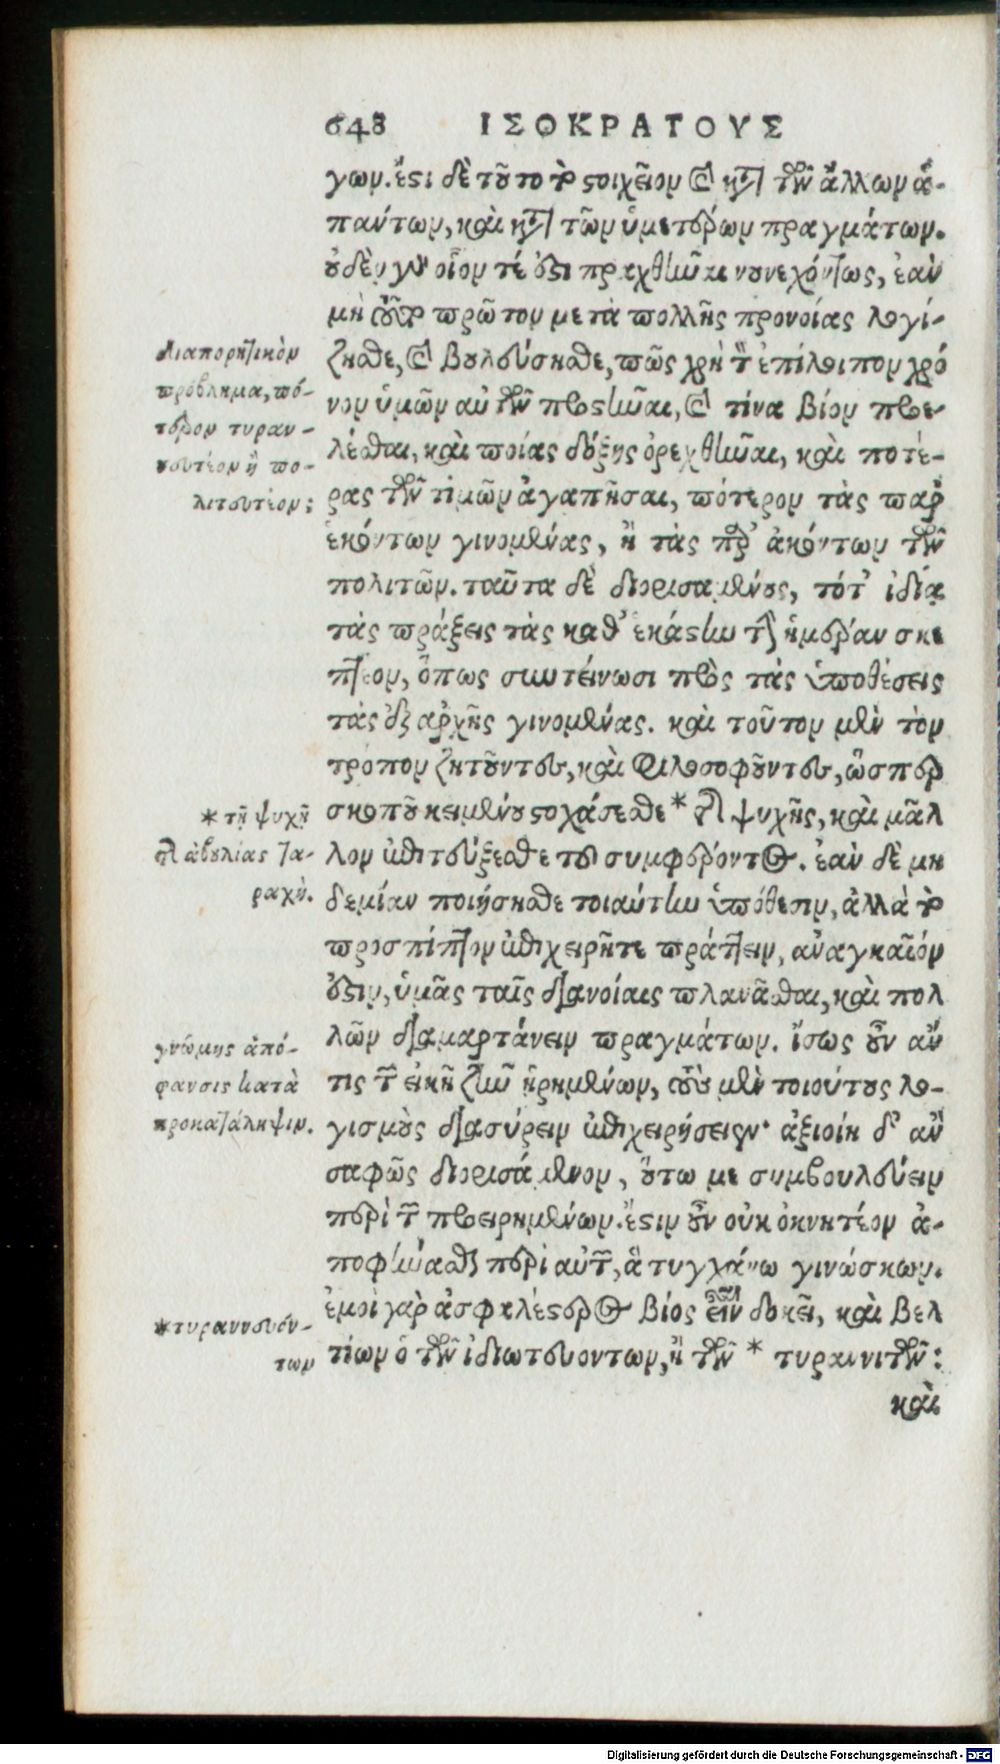 648 ΙΣΟΚΡΑΤΟΥΣ
γων. ἔστι δὲ τοῦτο τὸ στοιχεῖον καὶ κατὰ τῶν ἄλλων ἁ-
πάντων, καὶ κατὰ τῶν ὑμετέρων πραγμάτων.
οὐδὲν γὰρ οἷον τέ ἐστι πραχθῆναι νουνεχόντως, ἐὰν
μὴ τοῦτο πρῶτον μετὰ πολλῆς προνοίας λογί-
ζησθε, καὶ βουλεύσησθε, πῶς χρὴ τὸν ἐπίλοιπον χρό
νον ὑμῶν αὐτῶν προστῆναι, καὶ τίνα βίον προε-
λέσθαι, καὶ ποίας δόξης ὀρεχθῆναι, καὶ ποτέ-
ρας τῶν τιμῶν ἀγαπῆσαι, πότερον τὰς παρ'
ἑκόντων γινομένας, ἢ τὰς παρ' ἀκόντων τῶν
πολιτῶν. ταῦτα δὲ διορισαμένους, τότ' ἰδίᾳ
τὰς πράξεις τὰς καθ' ἑκάστην τὴν ἡμέραν σκε
πτέον, ὅπως συντείνωσι πρὸς τὰς ὑποθέσεις
τὰς ἐξ ἀρχῆς γινομένας. καὶ τοῦτον μὲν τὸν
τρόπον ζητοῦντες, καὶ φιλοσοφοῦντες, ὥσπερ
σκοποῦ κειμένου στοχάσεσθε * τῆς ψυχῆς, καὶ μᾶλ
λον ἐπιτεύξεσθε τοῦ συμφέροντος. ἐὰν δὲ μη
δεμίαν ποιήσησθε τοιαύτην ὑπόθεσιν, ἀλλὰ τὸ
προσπίπτον ἐπιχειρῆτε πράττειν, ἀναγκαῖόν
ἐστιν, ὑμᾶς ταῖς διανοίαις πλανᾶσθαι, καὶ πολ
λῶν διαμαρτάνειν πραγμάτων. ἴσως οὖν ἄν
τις τῶν εἰκῆ ζῆν ᾑρημένων, τοὺς μὲν τοιούτους λο-
γισμοὺς διασύρειν ἐπιχειρήσειεν· ἀξιοίη δ' ἂν
σαφῶς διορισάμενον, οὕτω με συμβουλεύειν
περὶ τῶν προειρημένων. ἔστιν οὖν οὐκ ὀκνητέον ἀ-
ποφήνασθαι περὶ αὐτῶν, ἃ τυγχάνω γινώσκων.
ἐμοὶ γὰρ ἀσφαλέστερος βίος εἶναι δοκεῖ, καὶ βελ
τίων ὁ τῶν ἰδιωτευόντων, ἢ τῶν * τυραννιτῶν:
καὶ
Διαπορητικὸν
πρόβλημα, πό-
τερον τυραν-
νευτέον ἢ πο-
λιτευτέον;
* τῇ ψυχῇ
τῆς ἀβουλίας τα-
ραχή.
γνώμης ἀπό-
φανσις κατὰ
προκατάληψιν.
* τυραννευόν-
των
Digitalisierung gefördert durch die Deutsche Forschungsgemeinschaft - DFG